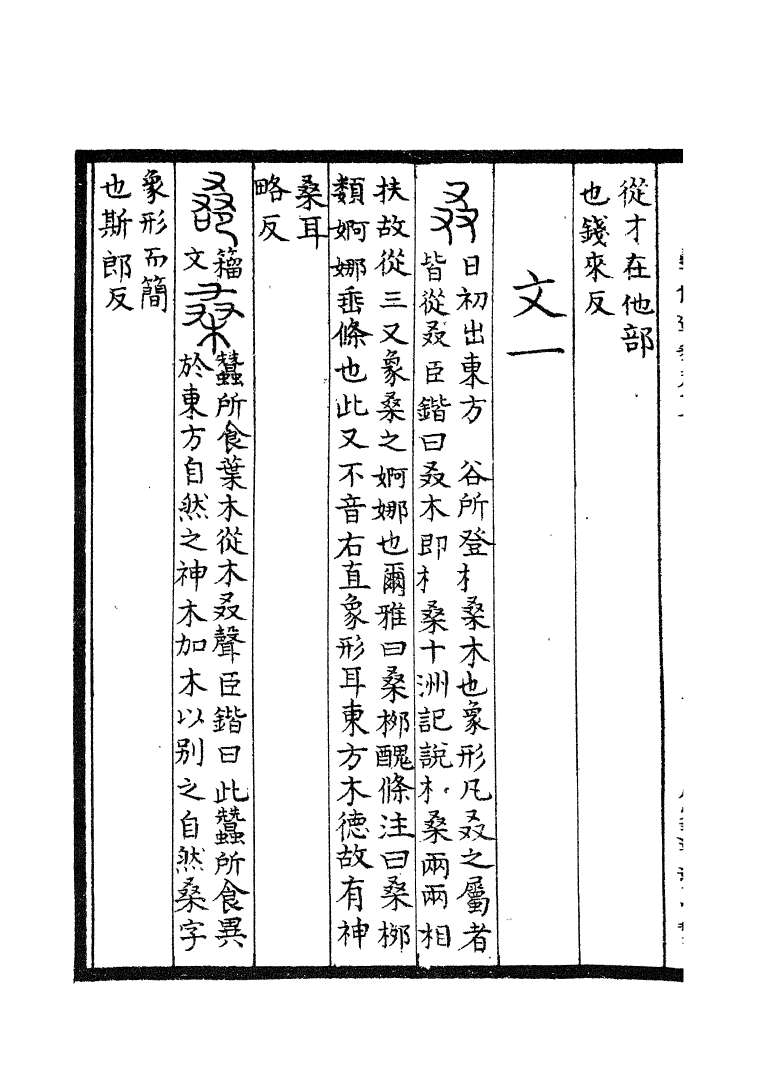 從才在他部
也錢來反
文一
叒日初出東方 谷所登 桑木也象形凡叒之屬者
皆從叒臣鍇曰叒木即 桑十洲記說 桑兩兩相
扶故從三又象桑之婀娜也爾雅曰桑柳醜條注曰桑柳
類婀娜垂條也此又不音右直象形耳東方木德故有神
桑耳
略反
籀
文
桑蠶所食葉木從木叒聲臣鍇曰此蠶所食異
於東方自然之神木加木以别之自然桑字
象形而簡
也斯郎反